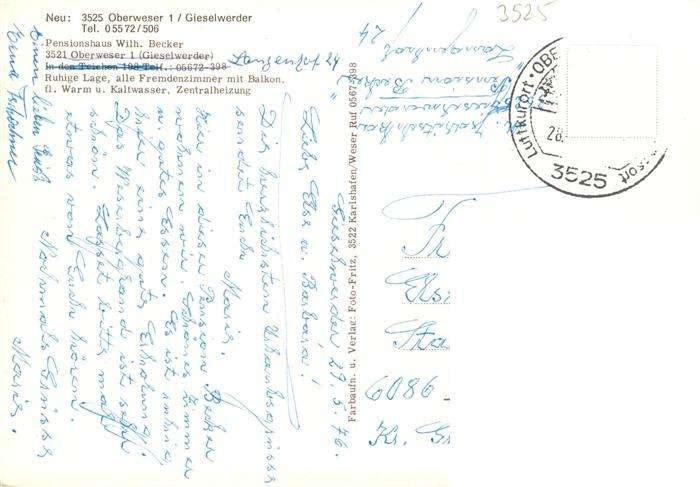 3525
Neu: 3525 Oberweser 1 / Gieselwerder
Tel. 0 55 72 / 506
Pensionshaus Wilh. Becker
3521 Oberweser 1 (Gieselwerder)
In den Teichen 198 Telf.: 05672-398
Langenhof 24
Ruhige Lage, alle Fremdenzimmer mit Balkon,
fl. Warm u. Kaltwasser, Zentralheizung
Gieselwerder 29.5.76.
Liebe Else u. Barbara!
Die herzlichsten Urlaubsgrüsse
sendet Euch Maria.
Hier in dieser Pension Becker
wohnen wir. Schönes Zimmer
u. gutes Essen. Es ist ruhig
hier eine gute Erholung.
Das Weserbergland ist sehr
schön. Lasset bitte mal
etwas von Euch hören.
Nochmals Grüsse
Maria.
Einen lieben Gruß
Erna
Farbaufn. u. Verlag: Foto-Fritz, 3522 Karlshafen/Weser Ruf 05672-398
Pension Becker
Langenhof
24
Luftkurort · OBE
28.
3525
sort
6086
Kr. G